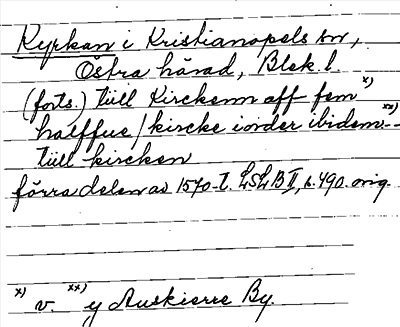 Kyrkan i Kristianopels sn,
Östra härad, Blek. l.
(forts.) tiill Kirckenn aff fem x)
halffue / kircke iorder ibidem -- xx)
tiill kircken
förra delen av 1570-t. LSLB II, s. 490. orig.
x) v. xx) y Auskierre By